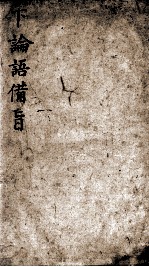 下論語備旨